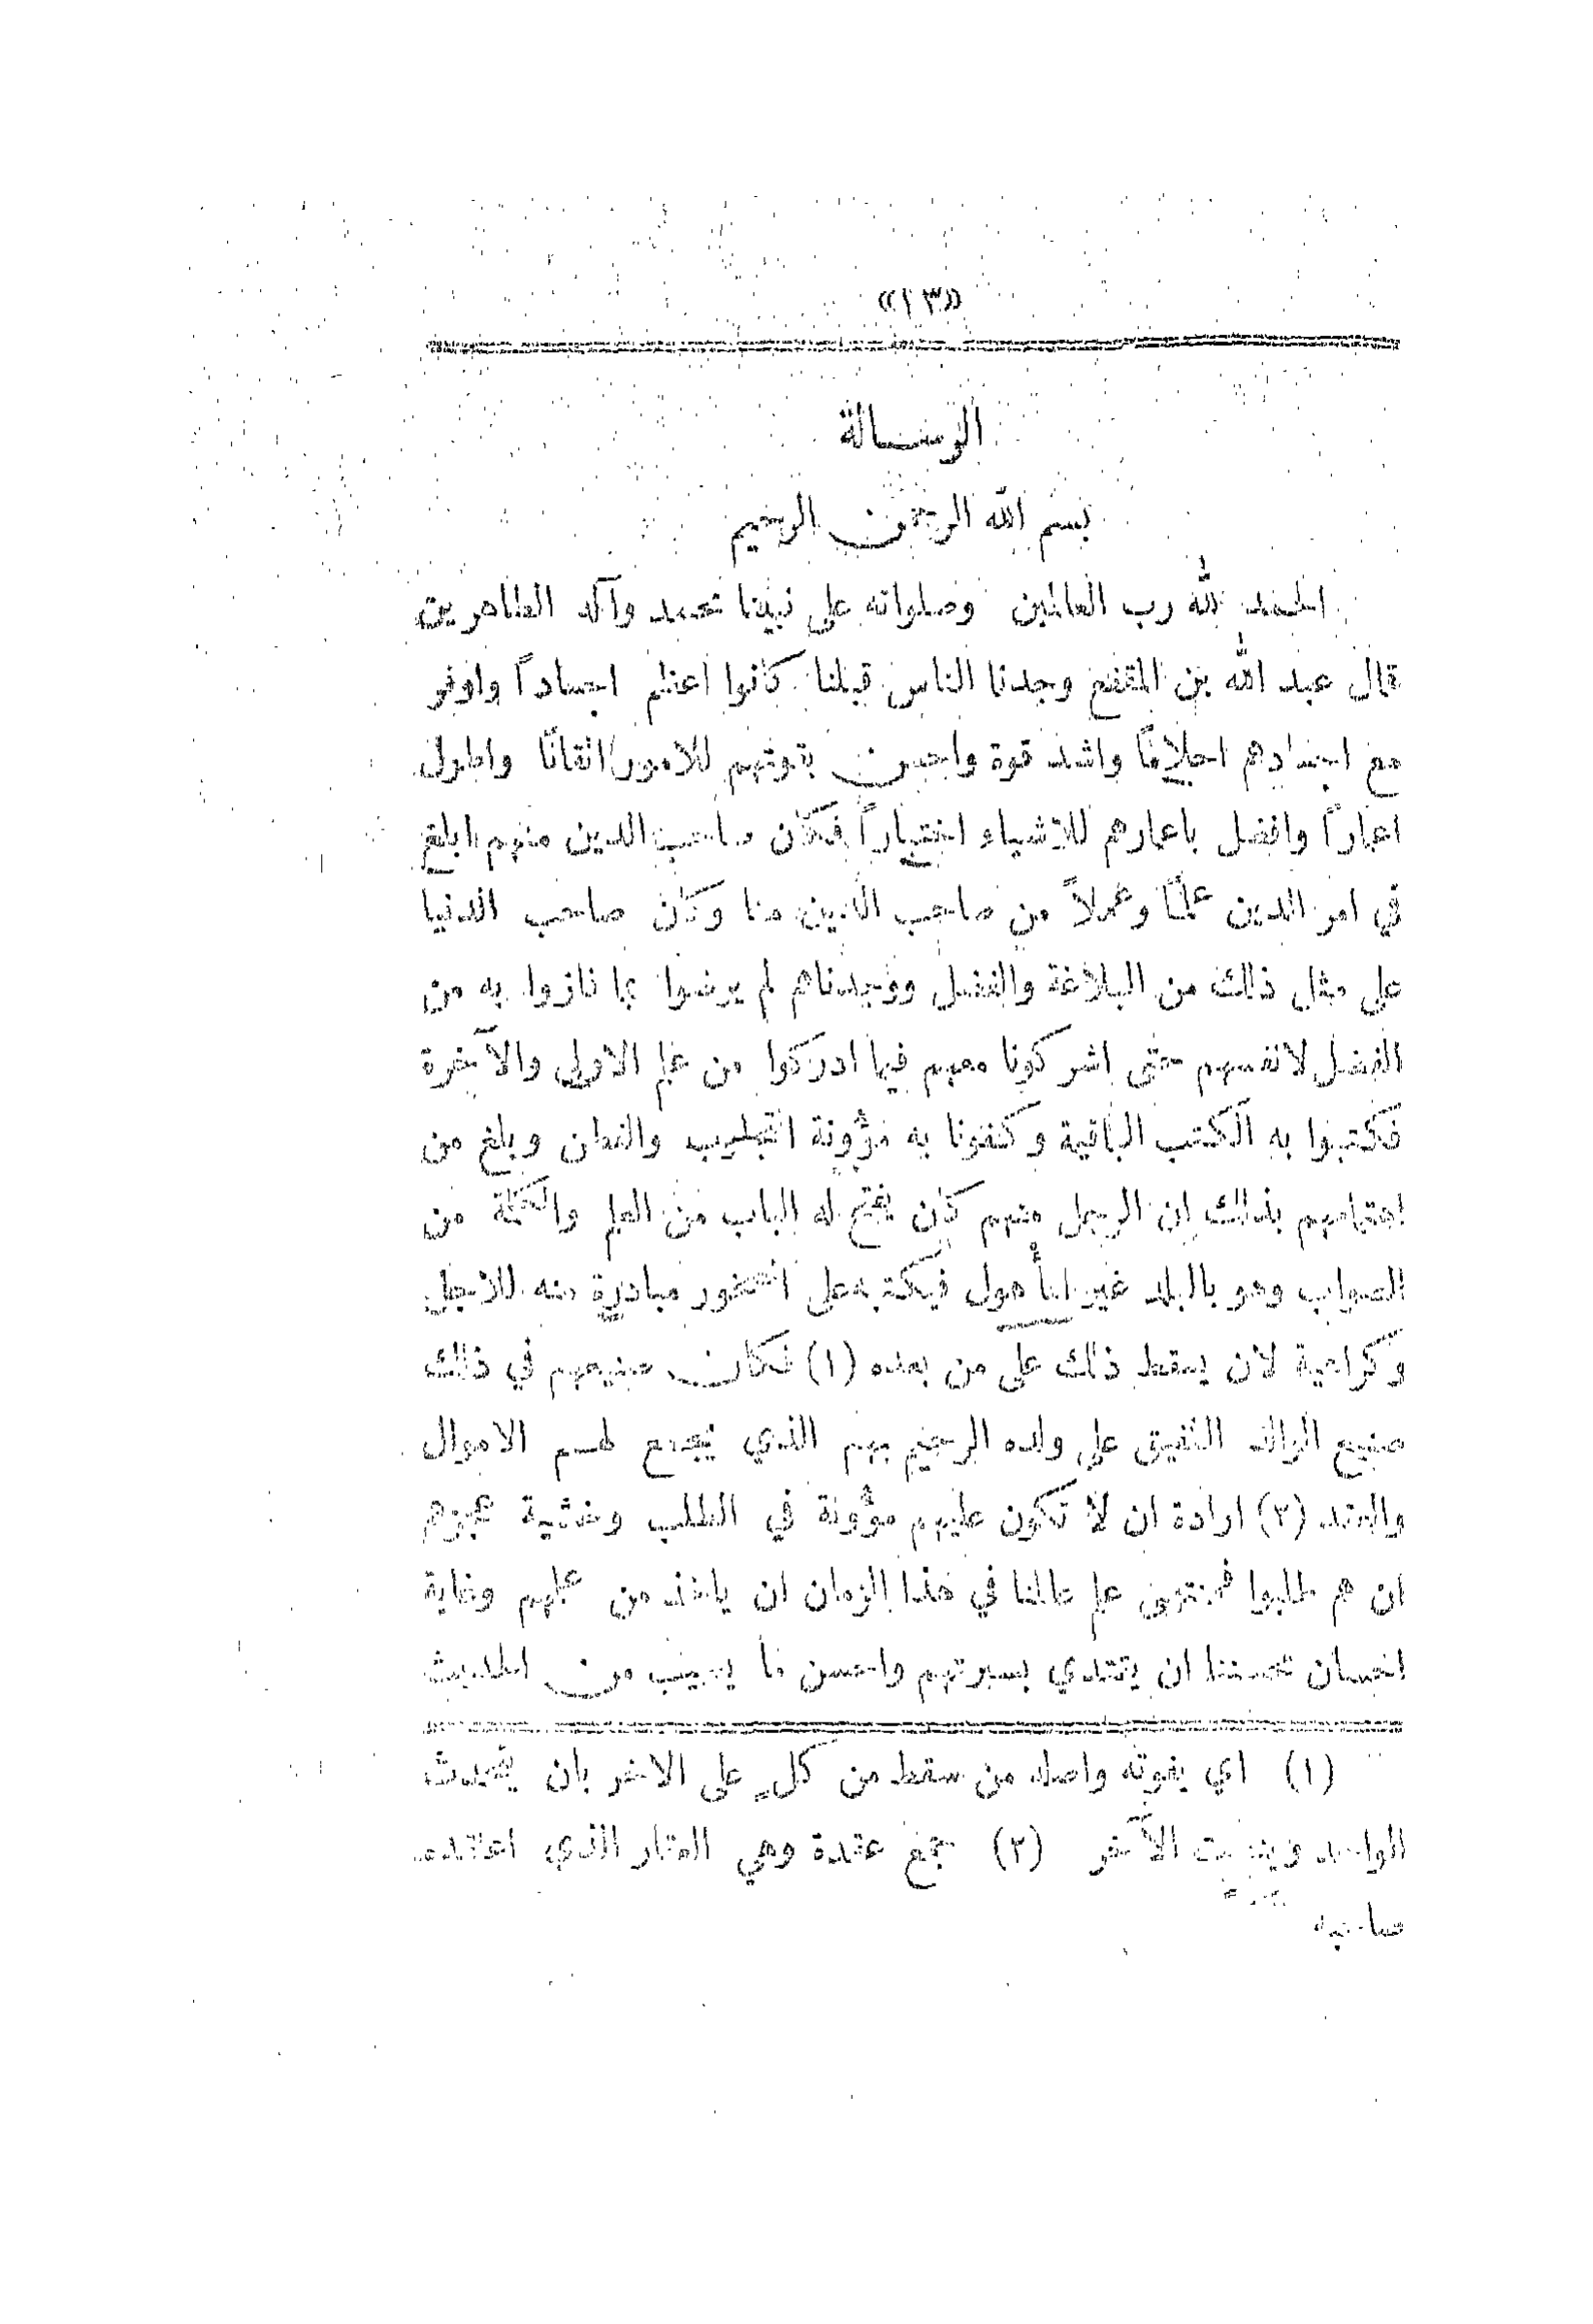 «١٣»
الرسالة
بسم الله الرحمن الرحيم
الحمد لله رب العالمين وصلواته على نبينا محمد وآله الطاهرين
قال عبد الله بن المقفع وجدنا الناس قبلنا كانوا اعظم اجساداً واوفر
مع اجسادهم احلامًا واشد قوة واحسن بقوتهم للامور اتقانًا واطول
اعماراً وافضل باعمارهم للاشياء اختباراً فكان صاحب الدين منهم ابلغ
في امر الدين علمًا وعملاً من صاحب الدين منا وكان صاحب الدنيا
على مثل ذلك من البلاغة والفضل ووجدناهم لم يرضوا بما فازوا به من
الفضل لانفسهم حتى اشركونا معهم فيما ادركوا من علم الاولى والآخرة
فكتبوا به الكتب الباقية وكفونا به مؤونة التجاريب والفطن وبلغ من
اهتمامهم بذلك ان الرجل منهم كان يفتح له الباب من العلم والكلمة من
الصواب وهو بالبلد غير المأهول فيكتبه على الصخور مبادرة منه للاجل
وكراهية لان يسقط ذلك على من بعده (١) فكان صنيعهم في ذلك
صنيع الوالد الشفيق على ولده الرحيم بهم الذي يجمع لهم الاموال
والعقد (٢) ارادة ان لا تكون عليهم مؤونة في الطلب وخشية عجزهم
ان هم طلبوا فمنتهى علم عالمنا في هذا الزمان ان ياخذ من علمهم وغاية
احسان محسننا ان يقتدي بسيرتهم واحسن ما يصيب من الحديث
(١) اي يفوته واصله من سقط من كلٍ على الاخر بان يتحدث
الواحد وينصت الآخر (٢) جمع عقدة وهي العقار الذي اعتقده
صاحبه